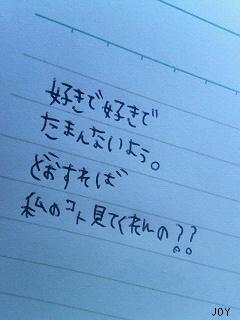 好きで好きで
たまんないよう。
どおすれば
私のコト見てくれんの??
JOY